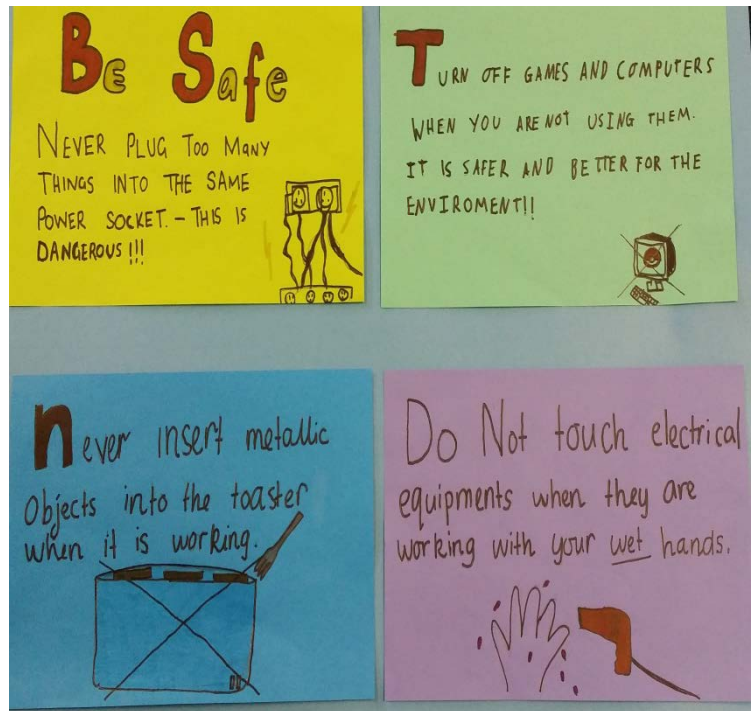 Be Safe
NEVER PLUG TOO MANY
THINGS INTO THE SAME
POWER SOCKET. – THIS IS
DANGEROUS!!!
TURN OFF GAMES AND COMPUTERS
WHEN YOU ARE NOT USING THEM.
IT IS SAFER AND BETTER FOR THE
ENVIROMENT!!
never insert metallic
objects into the toaster
when it is working.
Do Not touch electrical
equipments when they are
working with your wet hands.